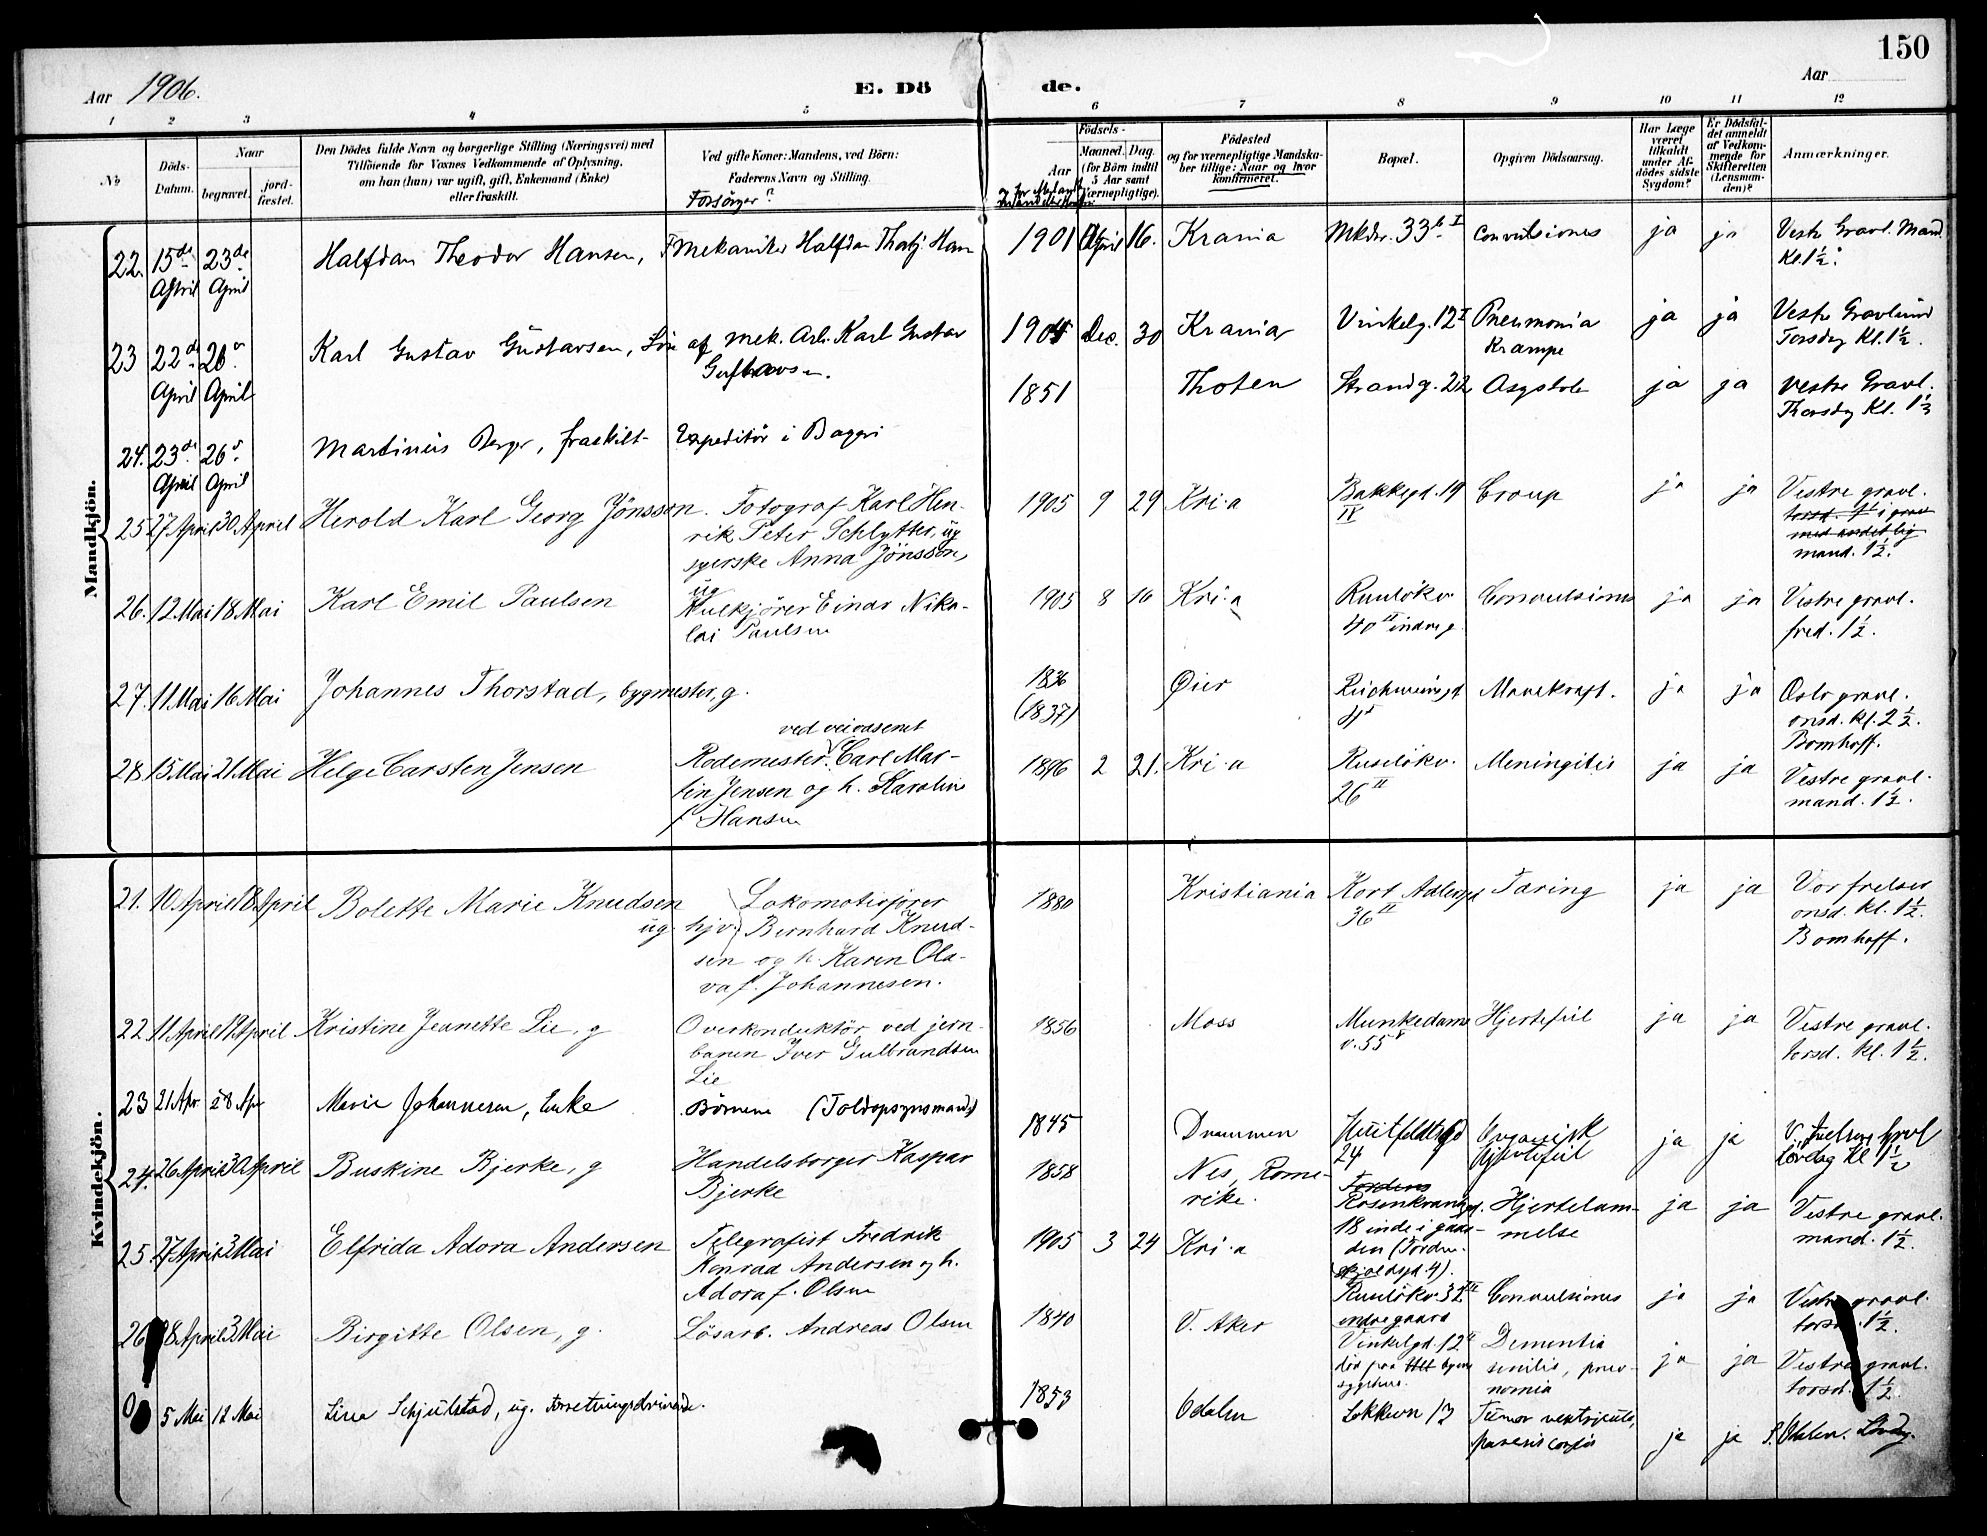 150
Aar 1906.
E. Dö
de.
Aar
1 2 3 4 5 6 7 8 9 10 11 12
No
Döds-Datum.
Naar
begravet.
jord-fæstet.
Den Dödes fulde Navn og borgerlige Stilling (Næringsvei) med
Tilföiende for Voxnes Vedkommende af Oplysning,
om han (hun) var ugift, gift, Enkemand (Enke)
eller fraskilt.
Ved gifte Koner: Mandens, ved Börn:
Faderens Navn og Stilling.
Forsörger
Födsels-
Aar
Maaned. Dag.
(for Börn indtil
5 Aar samt
Værnepligtige).
Födested
og for værnepligtige Mandska-
ber tillige: Naar og hvor
konfirmeret.
Bopæl.
Opgiven Dödsaarsag.
Har Læge
været
tilkaldt
under Af-
dödes sidste
Sygdom?
Er Dödsfal-
det anmeldt
af Vedkom-
mende for
Skifteretten
(Lensman-
den)?
Anmærkninger.
Mandkjön.
22. 15de April 23de April Halfdan Theodor Hansen, Mekaniker Halfdan Thorbj. Han 1901 April 16. Krania Mkdv. 33 b I Convulsiones ja ja Vestr Gravl. Mand.
Kl. 1½.
23 22de April 26 April Karl Gustav Gustavsen, Sön af Mek. Arb. Karl Gustav
Gustavsen. 1905 Dec. 30 Krania Vinkelg. 12 I Pneumonia
Krampe ja ja Vestr Gravlund
Torsdag Kl. 1½.
24. 23de April 26 April Martinius Berge, fraskilt Expeditör i Bageri 1851 Thoten Strandg. 22 Asystole ja ja Vestre Gravl.
Thorsdag Kl. 1½
25 27 April 30 April Herold Karl Georg Jönsson. Fotograf Karl Hen-
rik Peter Schlytter, ug
syerske Anna Jönsson,
ug 1905 9 29 Kri.a Bakkegd. 19
II Croup ja ja Vestre gravl.
torsd. 1½ i grav
med
mand. 1½.
26. 12 Mai 18 Mai Karl Emil Paulsen Kulkjörer Einar Niko-
lai Paulsen 1905 8 16 Kri.a Ruselökv.
40 II indre g. Convulsiones ja ja Vestre gravl.
fred. 1½.
27. 11 Mai 16 Mai Johannes Thorstad, bygmester, g. 1836
(1837) Øier Mavekræft. ja ja Oslo gravl.
onsd. kl. 2½.
Bomhoff.
28 15 Mai 21 Mai Helge Carsten Jensen ved veivæsenet
Rodemester Carl Mar-
tin Jensen og h. Karoline
f. Hansen 1896 2 21. Kri.a Ruselökv.
26 II Meningitis ja ja Vestre gravl.
mand. 1½.
Kvindekjön.
21. 10 April 18 April Bolette Marie Knudsen
ug. hjv. Lokomotivförer
Bernhard Knud-
sen og h. Karen Ola-
va f. Johannesen. 1880 Kristiania Kort Adlersgd
36 II Tæring ja ja Vor frelser
onsd. kl. 1½.
Bomhoff.
22. 11 April 19 April Kristine Jeanette Lie, g Overkonduktör ved jern-
banen Iver Gulbrandsen
Lie 1856 Moss Munkedams
v. 55 V Hjertefeil ja ja Vestre gravl.
torsd. kl. 1½.
23 21 Apr 28 Apr Marie Johannesen, Enke Börnene (Toldopsynsmand) 1845 Drammen Huitfeldtsgd
24 Organisk
Hjertefeil ja ja V. Frelsers Gravl
Lördag Kl 1½
24. 26 April 30 April Buskine Bjerke, g Handelsborger Kaspar
Bjerke 1858 Nes, Rome-
rike. Tordens
Rosenkrantzgd.
18 inde i gaar-
den (Torden-
skjoldsgd 4). Hjertelam-
melse ja ja Vestre gravl.
mand. 1½.
25. 27 April 3 Mai Elfrida Adora Andersen Telegrafist Fredrik
Konrad Andersen og h.
Adora f. Olsen 1905 3 24 Kri.a Ruselökv. 32 III
indre gaard Convulsiones ja ja Vestre gravl.
torsd. 1½.
26 28 April 3 Mai Birgitte Olsen, g. Lösarb. Andreas Olsen 1840 V. Aker Vinkelgd. 12
död paa byens
sygehus. Dementia
senilis, pneu-
monia ja ja Vestre gravl.
torsd. 1½.
5 Mai 12 Mai Lina Schjulstad, ug. Forretningsdrivende. 1853 Odalen Lökkevn 13 Tumor ventriculi,
paresis cordis ja ja S. Odalen. Lördag.